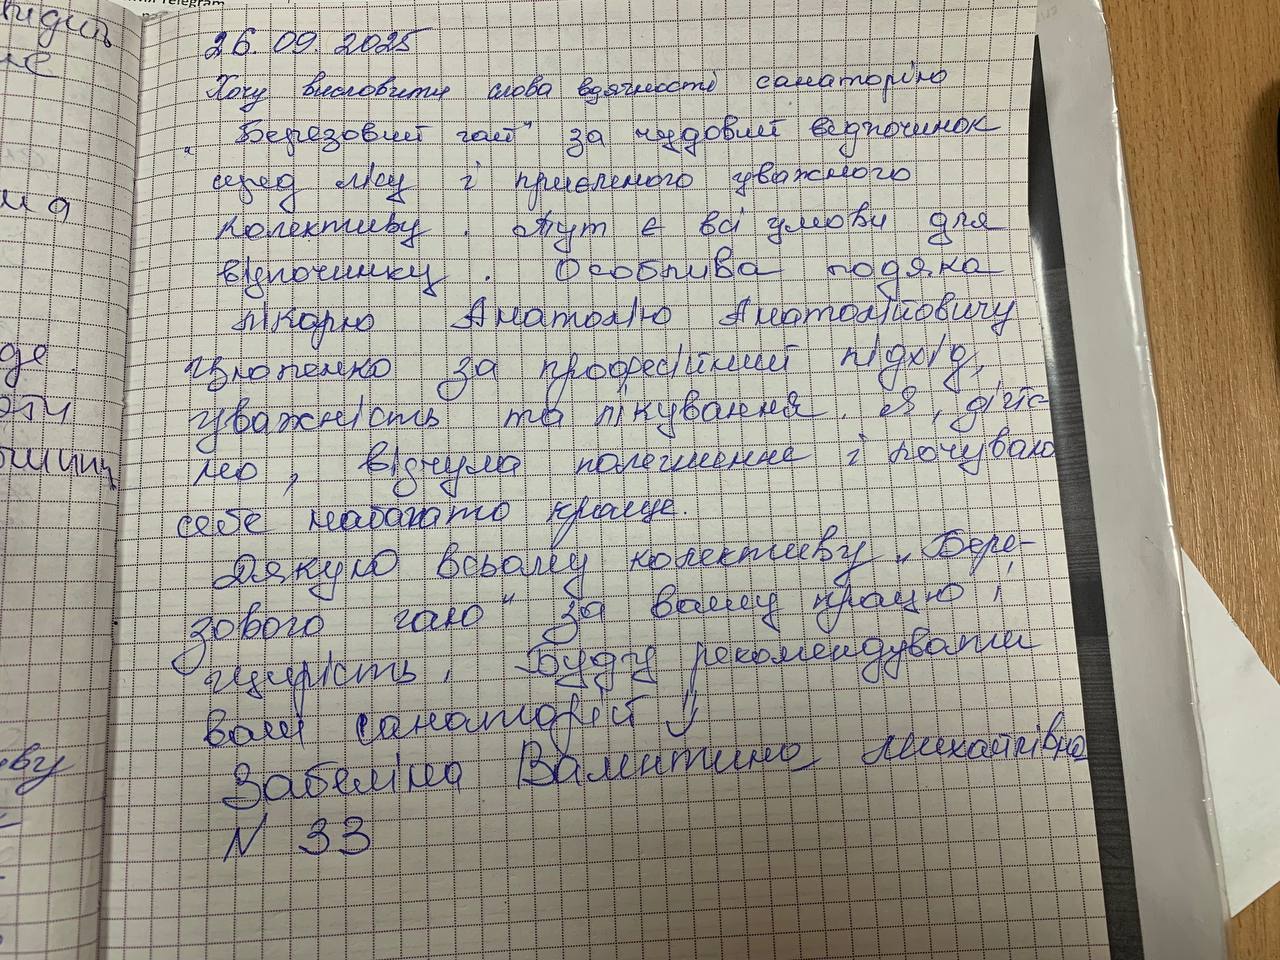 26.09.2025
Хочу висловити слова вдячності санаторію
„Березовий гай" за чудовий відпочинок
серед лісу і приємного уважного
колективу. Тут є всі умови для
відпочинку. Особлива подяка
лікарю Анатолію Анатолійовичу
за професійний підхід,
уважність та лікування. Я, дійс
но, відчула полегшення і почуваю
себе набагато краще.
Дякую всьому колективу „Бере-
зового гаю" за вашу працю і
щирість. Буду рекомендувати
ваш санаторій!
Забеліна Валентина Михайлівна
N 33